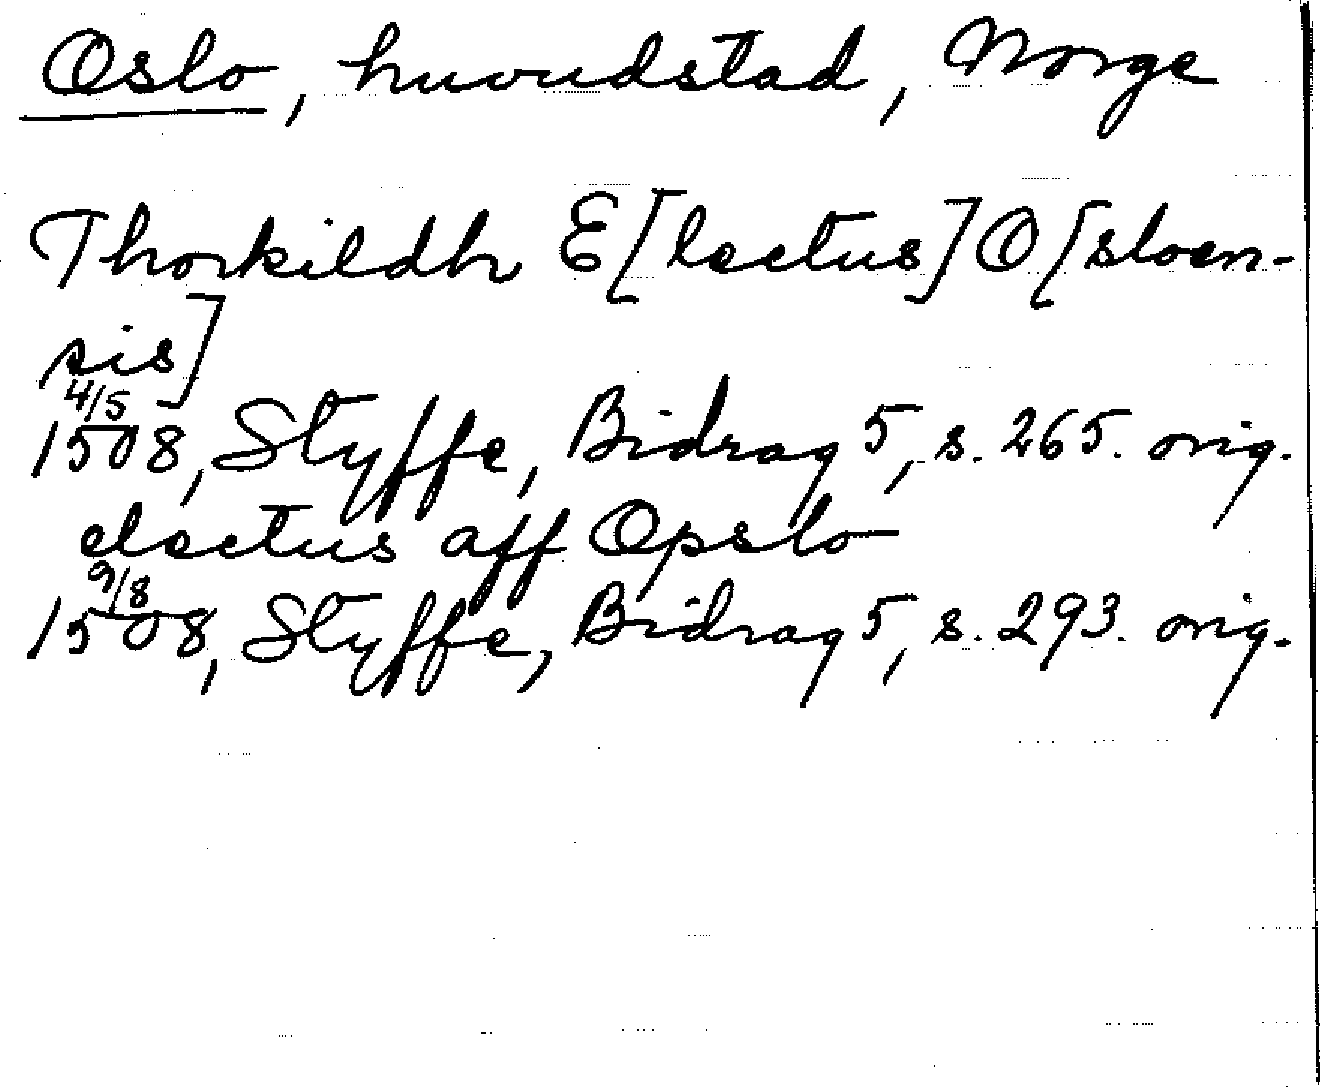 Oslo, huvudstad, Norge
Thorkildh E[lectus] O[sloen-
sis]
4/5
1508, Styffe, Bidrag 5, s. 265. orig.
electus aff Opslo
9/8
1508, Styffe, Bidrag 5, s. 293. orig.